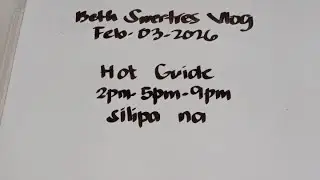 Beth Swertres Vlog
Feb-03-2026
Hot Guide
2pm-5pm-9pm
silipa na